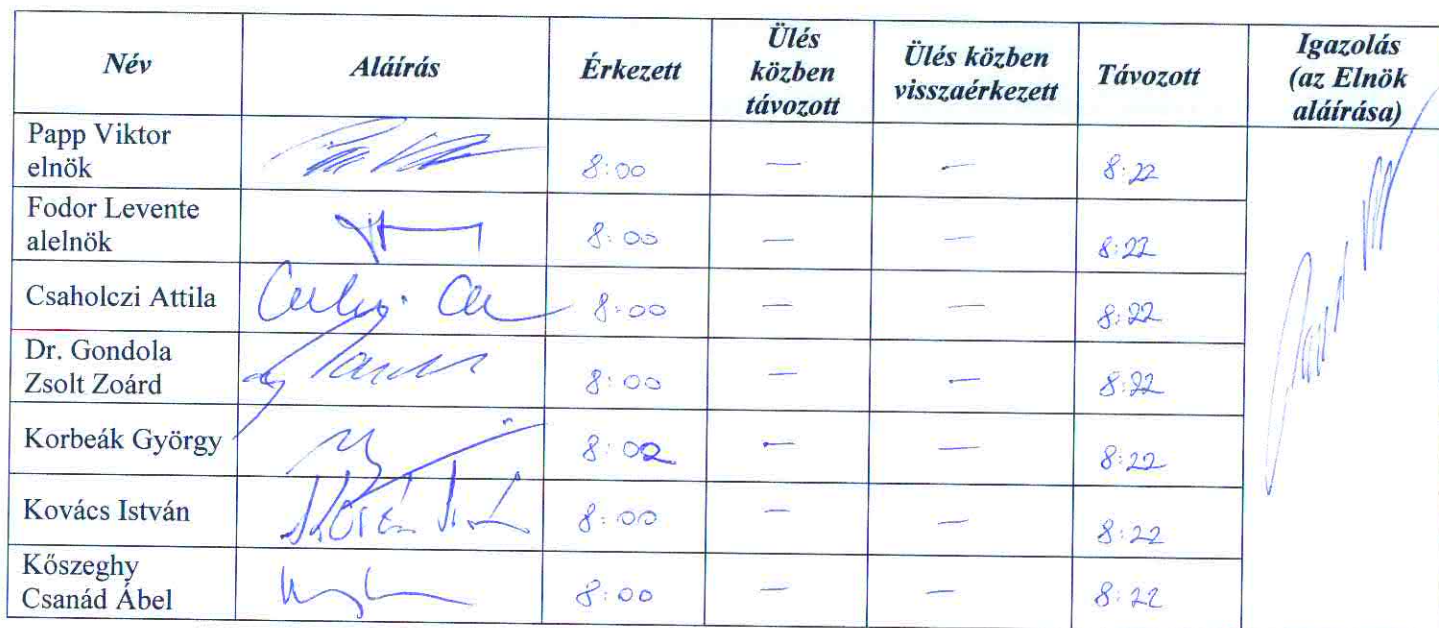 Név Aláírás Érkezett Ülés közben távozott Ülés közben visszaérkezett Távozott Igazolás (az Elnök aláírása)
Papp Viktor
elnök 8:00 — — 8:22
Fodor Levente
alelnök 8:00 — — 8:22
Csaholczi Attila 8:00 — — 8:22
Dr. Gondola
Zsolt Zoárd 8:00 — — 8:22
Korbeák György 8:02 — — 8:22
Kovács István 8:00 — — 8:22
Kőszeghy
Csanád Ábel 8:00 — — 8:22